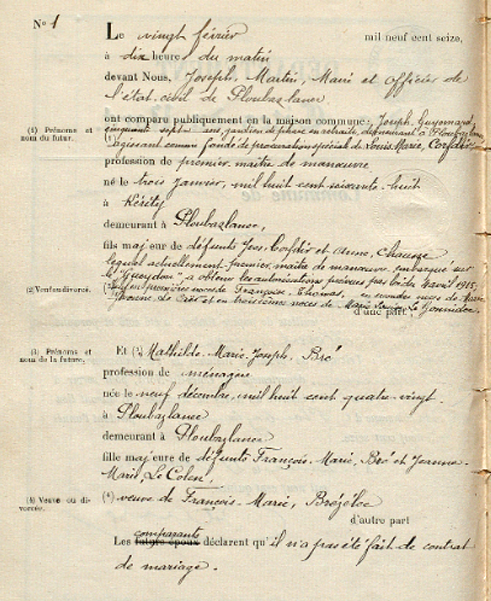 N° 1
Le vingt février mil neuf cent seize,
à dix heures du matin
devant Nous, Joseph, Martin, Maire et officier de
l'état civil de Ploubazlanec
ont comparu publiquement en la maison commune: Joseph Guyomard
(1) Prénoms et nom du futur.
cinquante sept ans, gardien de phare en retraite, demeurant à Ploubazlanec
(1) agissant comme fondé de procuration spécial de Louis, Marie, Corfdir
profession de premier maître de manœuvre
né le trois janvier, mil huit cent soixante huit
à Kérity
demeurant à Ploubazlanec,
fils majeur de défunts Yves, Corfdir et Anne,
lequel actuellement premier maître de manœuvre, embarqué sur
le "Gueydon" a obtenu les autorisations prévues par loi du 4 avril 1915,
(2) Veuf ou divorcé.
(2) veuf en premières noces de Françoise, Thomas, en secondes noces de Marie
Yvonne, Le et en troisièmes noces de Marie Louise, Le Bonniec
d'une part.
(3) Prénoms et nom de la future.
Et (3) Mathilde-Marie-Joseph, Bré
profession de ménagère
née le neuf décembre, mil huit cent quatre-vingt.
à Ploubazlanec
demeurant à Ploubazlanec
fille majeure de défunts François-Marie, Bré et Jeanne-
Marie, Le Calen,
(4) Veuve ou divorcée.
(4) veuve de François-Marie, Brézélec
d'autre part
comparants
Les futurs époux déclarent qu'il n'a pas été fait de contrat
de mariage.